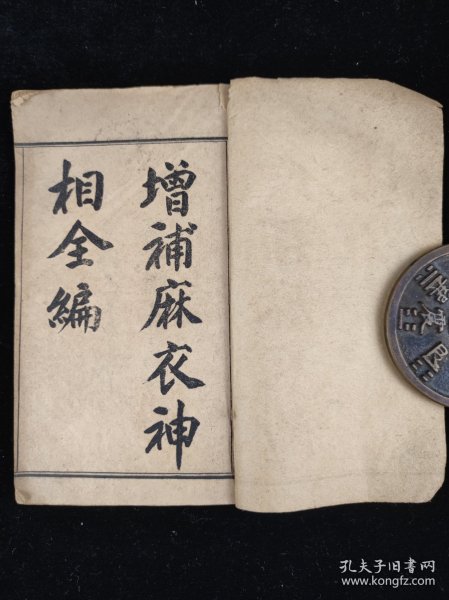 增補麻衣神
相全編
孔夫子旧书网
www.kongfz.com